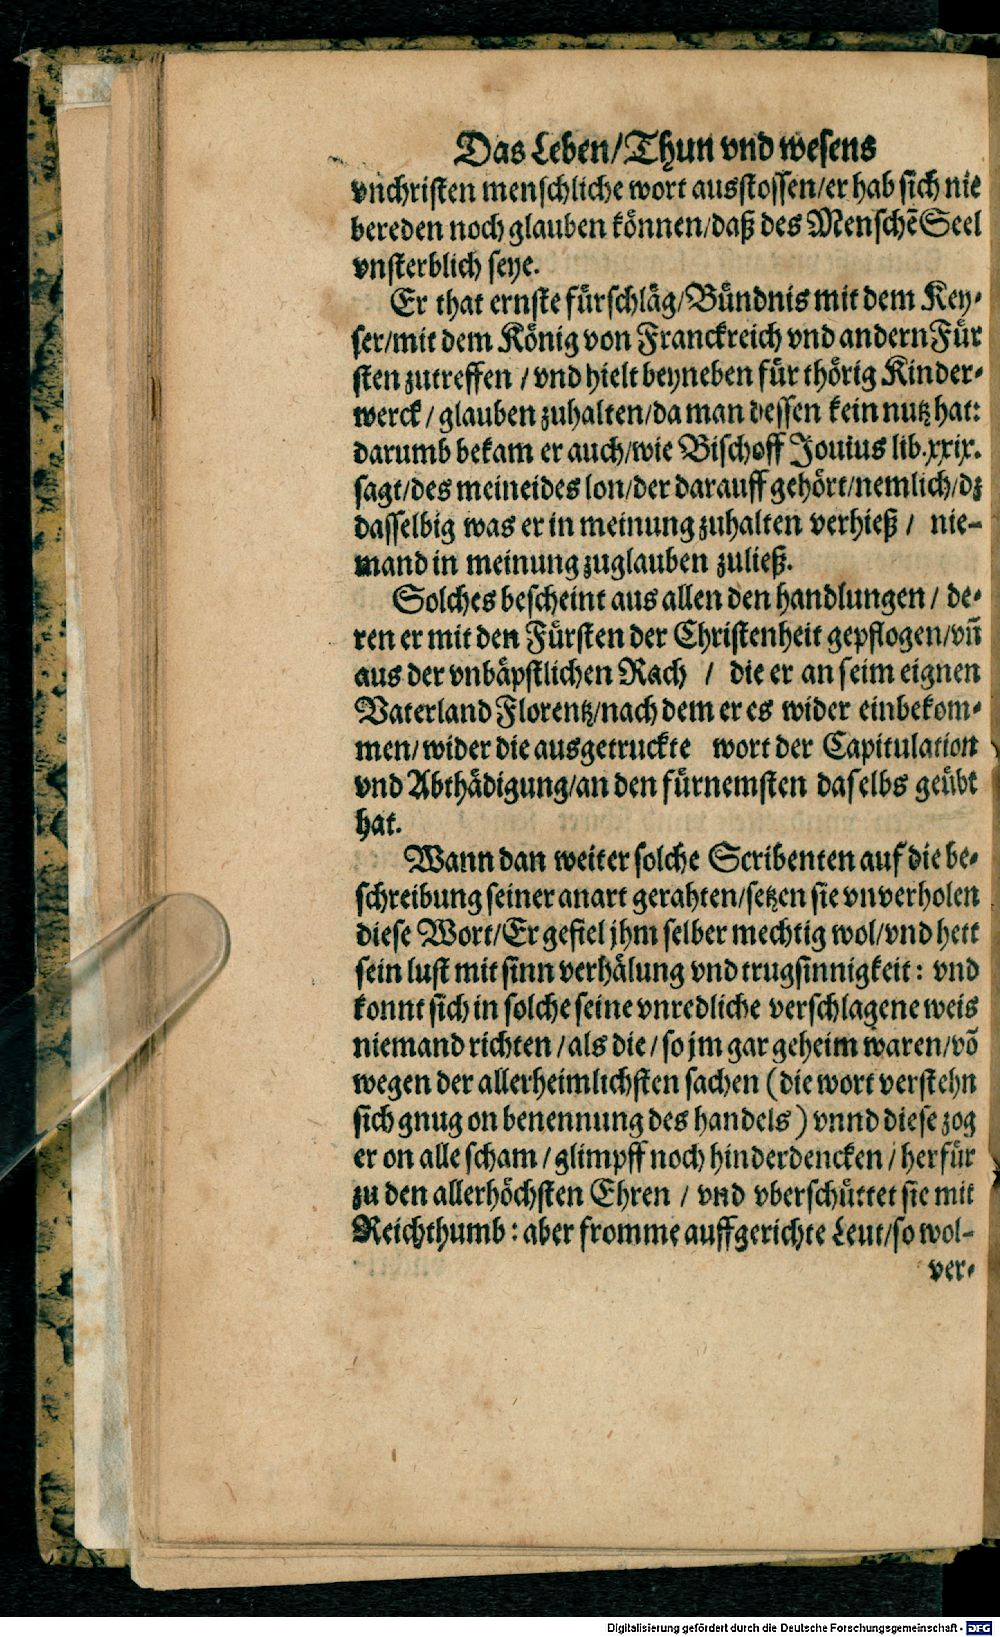 Das Leben/Thun vnd wesens
vnchristen menschliche wort ausstossen/er hab sich nie
bereden noch glauben können/daß des Menschē Seel
vnsterblich seye.
Er that ernste fürschläg/Bündnis mit dem Key-
ser/mit dem König von Franckreich vnd andern Für
sten zutreffen / vnd hielt beyneben für thörig Kinder-
werck / glauben zuhalten/da man dessen kein nutz hat:
darumb bekam er auch/wie Bischoff Jouius lib.xxix.
sagt/des meineides lon/der darauff gehört/nemlich/dz
dasselbig was er in meinung zuhalten verhieß / nie-
mand in meinung zuglauben zuließ.
Solches bescheint aus allen den handlungen / de-
ren er mit den Fürsten der Christenheit gepflogen/vn̄
aus der vnbäpstlichen Rach / die er an seim eignen
Vaterland Florentz/nach dem er es wider einbekom-
men/wider die ausgetruckte wort der Capitulation
vnd Abthädigung/an den fürnemsten daselbs geübt
hat.
Wann dan weiter solche Scribenten auf die be-
schreibung seiner anart gerahten/setzen sie vnverholen
diese Wort/Er gefiel jhm selber mechtig wol/vnd hett
sein lust mit sinn verhälung vnd trugsinnigkeit: vnd
konnt sich in solche seine vnredliche verschlagene weis
niemand richten/als die/so jm gar geheim waren/vō
wegen der allerheimlichsten sachen (die wort verstehn
sich gnug on benennung des handels) vnnd diese zog
er on alle scham/glimpff noch hinderdencken/herfür
zu den allerhöchsten Ehren / vnd vberschüttet sie mit
Reichthumb: aber fromme auffgerichte Leut/so wol-
ver-
Digitalisierung gefördert durch die Deutsche Forschungsgemeinschaft - DFG